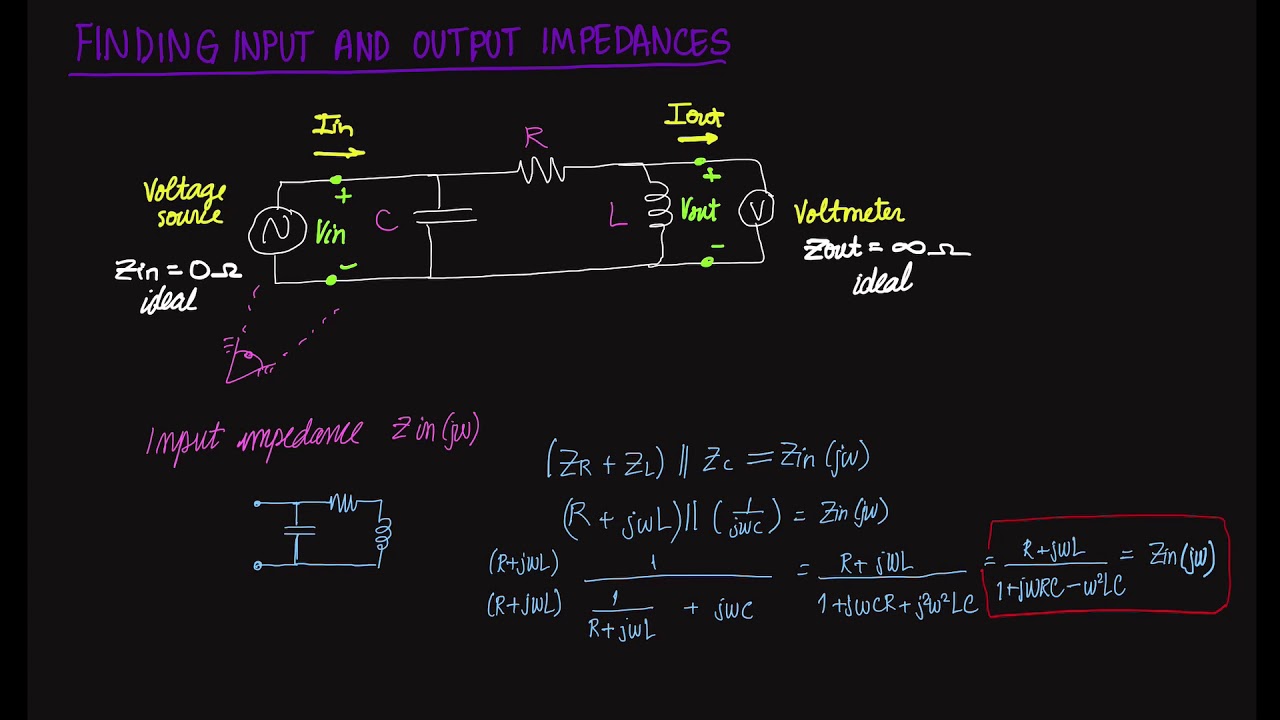 FINDING INPUT AND OUTPUT IMPEDANCES
Iin
Iout
R
Voltage
source
+
Vin
-
C
L
+
Vout
-
V
Voltmeter
Zin = 0Ω
ideal
Zout = ∞Ω
ideal
Input impedance Zin(jω)
(ZR + ZL) || ZC = Zin(jω)
(R + jωL) || (1/jωC) = Zin(jω)
(R+jωL) 1 / (R+jωL) (1/(R+jωL) + jωC) = (R + jωL)/(1+jωCR+j²ω²LC) = (R+jωL)/(1+jωRC-ω²LC) = Zin(jω)